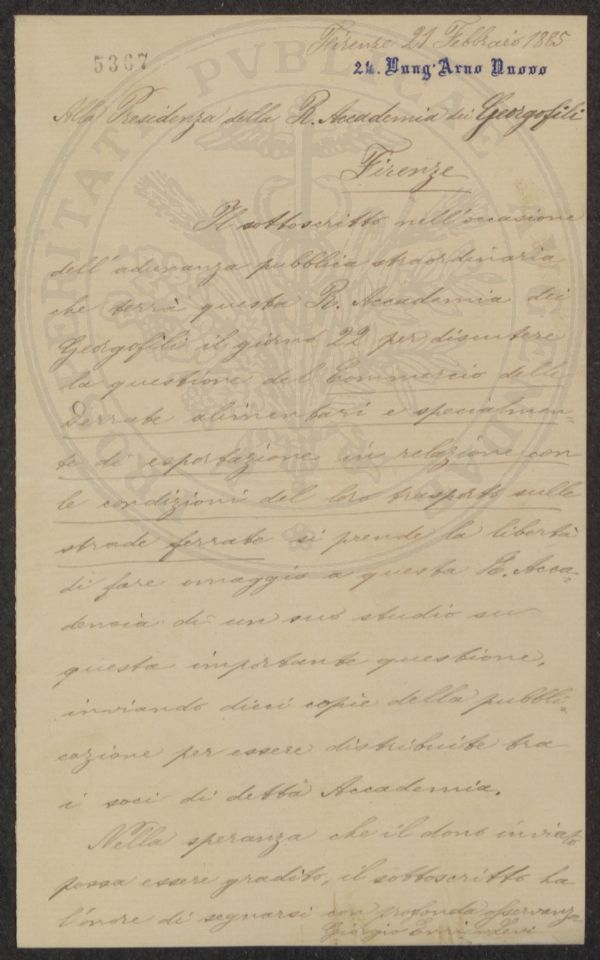 Firenze 21 Febbraio 1885
5367
24. Lung'Arno Nuovo
Alla Presidenza della R. Accademia dei Georgofili
Firenze
Il sottoscritto nell'occasione
dell'adunanza pubblica straordinaria
che terrà questa R. Accademia dei
Georgofili il giorno 22 per discutere
la questione del Commercio delle
Derrate alimentari e specialmen-
te di esportazione in relazione con
le condizioni del loro trasporto sulle
strade ferrate si prende la libertà
di fare omaggio a questa R. Acca-
demia di un suo studio su
questa importante questione,
inviando dieci copie della pubbli-
cazione per essere distribuite tra
i soci di detta Accademia.
Nella speranza che il dono inviato
possa essere gradito, il sottoscritto ha
l'onore di segnarsi con profonda osservanza
Giorgio Levi